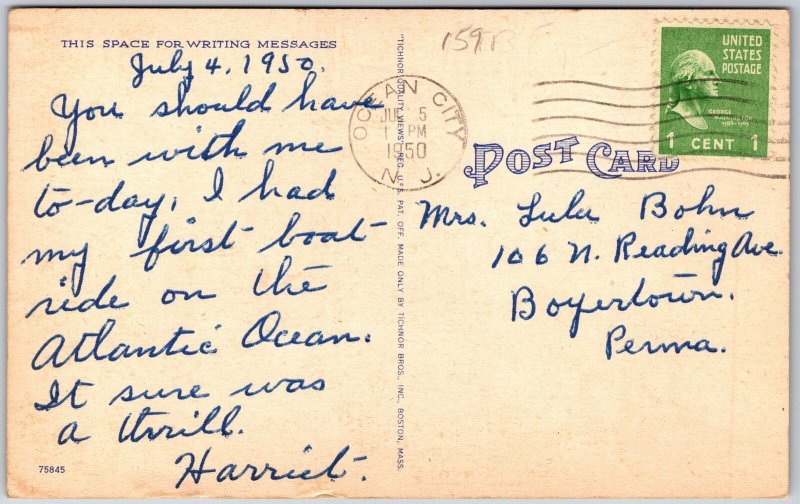 THIS SPACE FOR WRITING MESSAGES
July 4, 1950.
You should have
been with me
to-day, I had
my first boat
ride on the
Atlantic Ocean.
It sure was
a thrill.
Harriet.
75845
"TICHNOR QUALITY VIEWS," REG. U. S. PAT. OFF. MADE ONLY BY TICHNOR BROS., INC., BOSTON, MASS.
159
OCEAN CITY
5
PM
1950
N. J.
UNITED
STATES
POSTAGE
GEORGE
WASHINGTON
1789-1797
1 CENT 1
POST CARD
Mrs. Lulu Bohn
106 N. Reading Ave
Boyertown.
Penna.